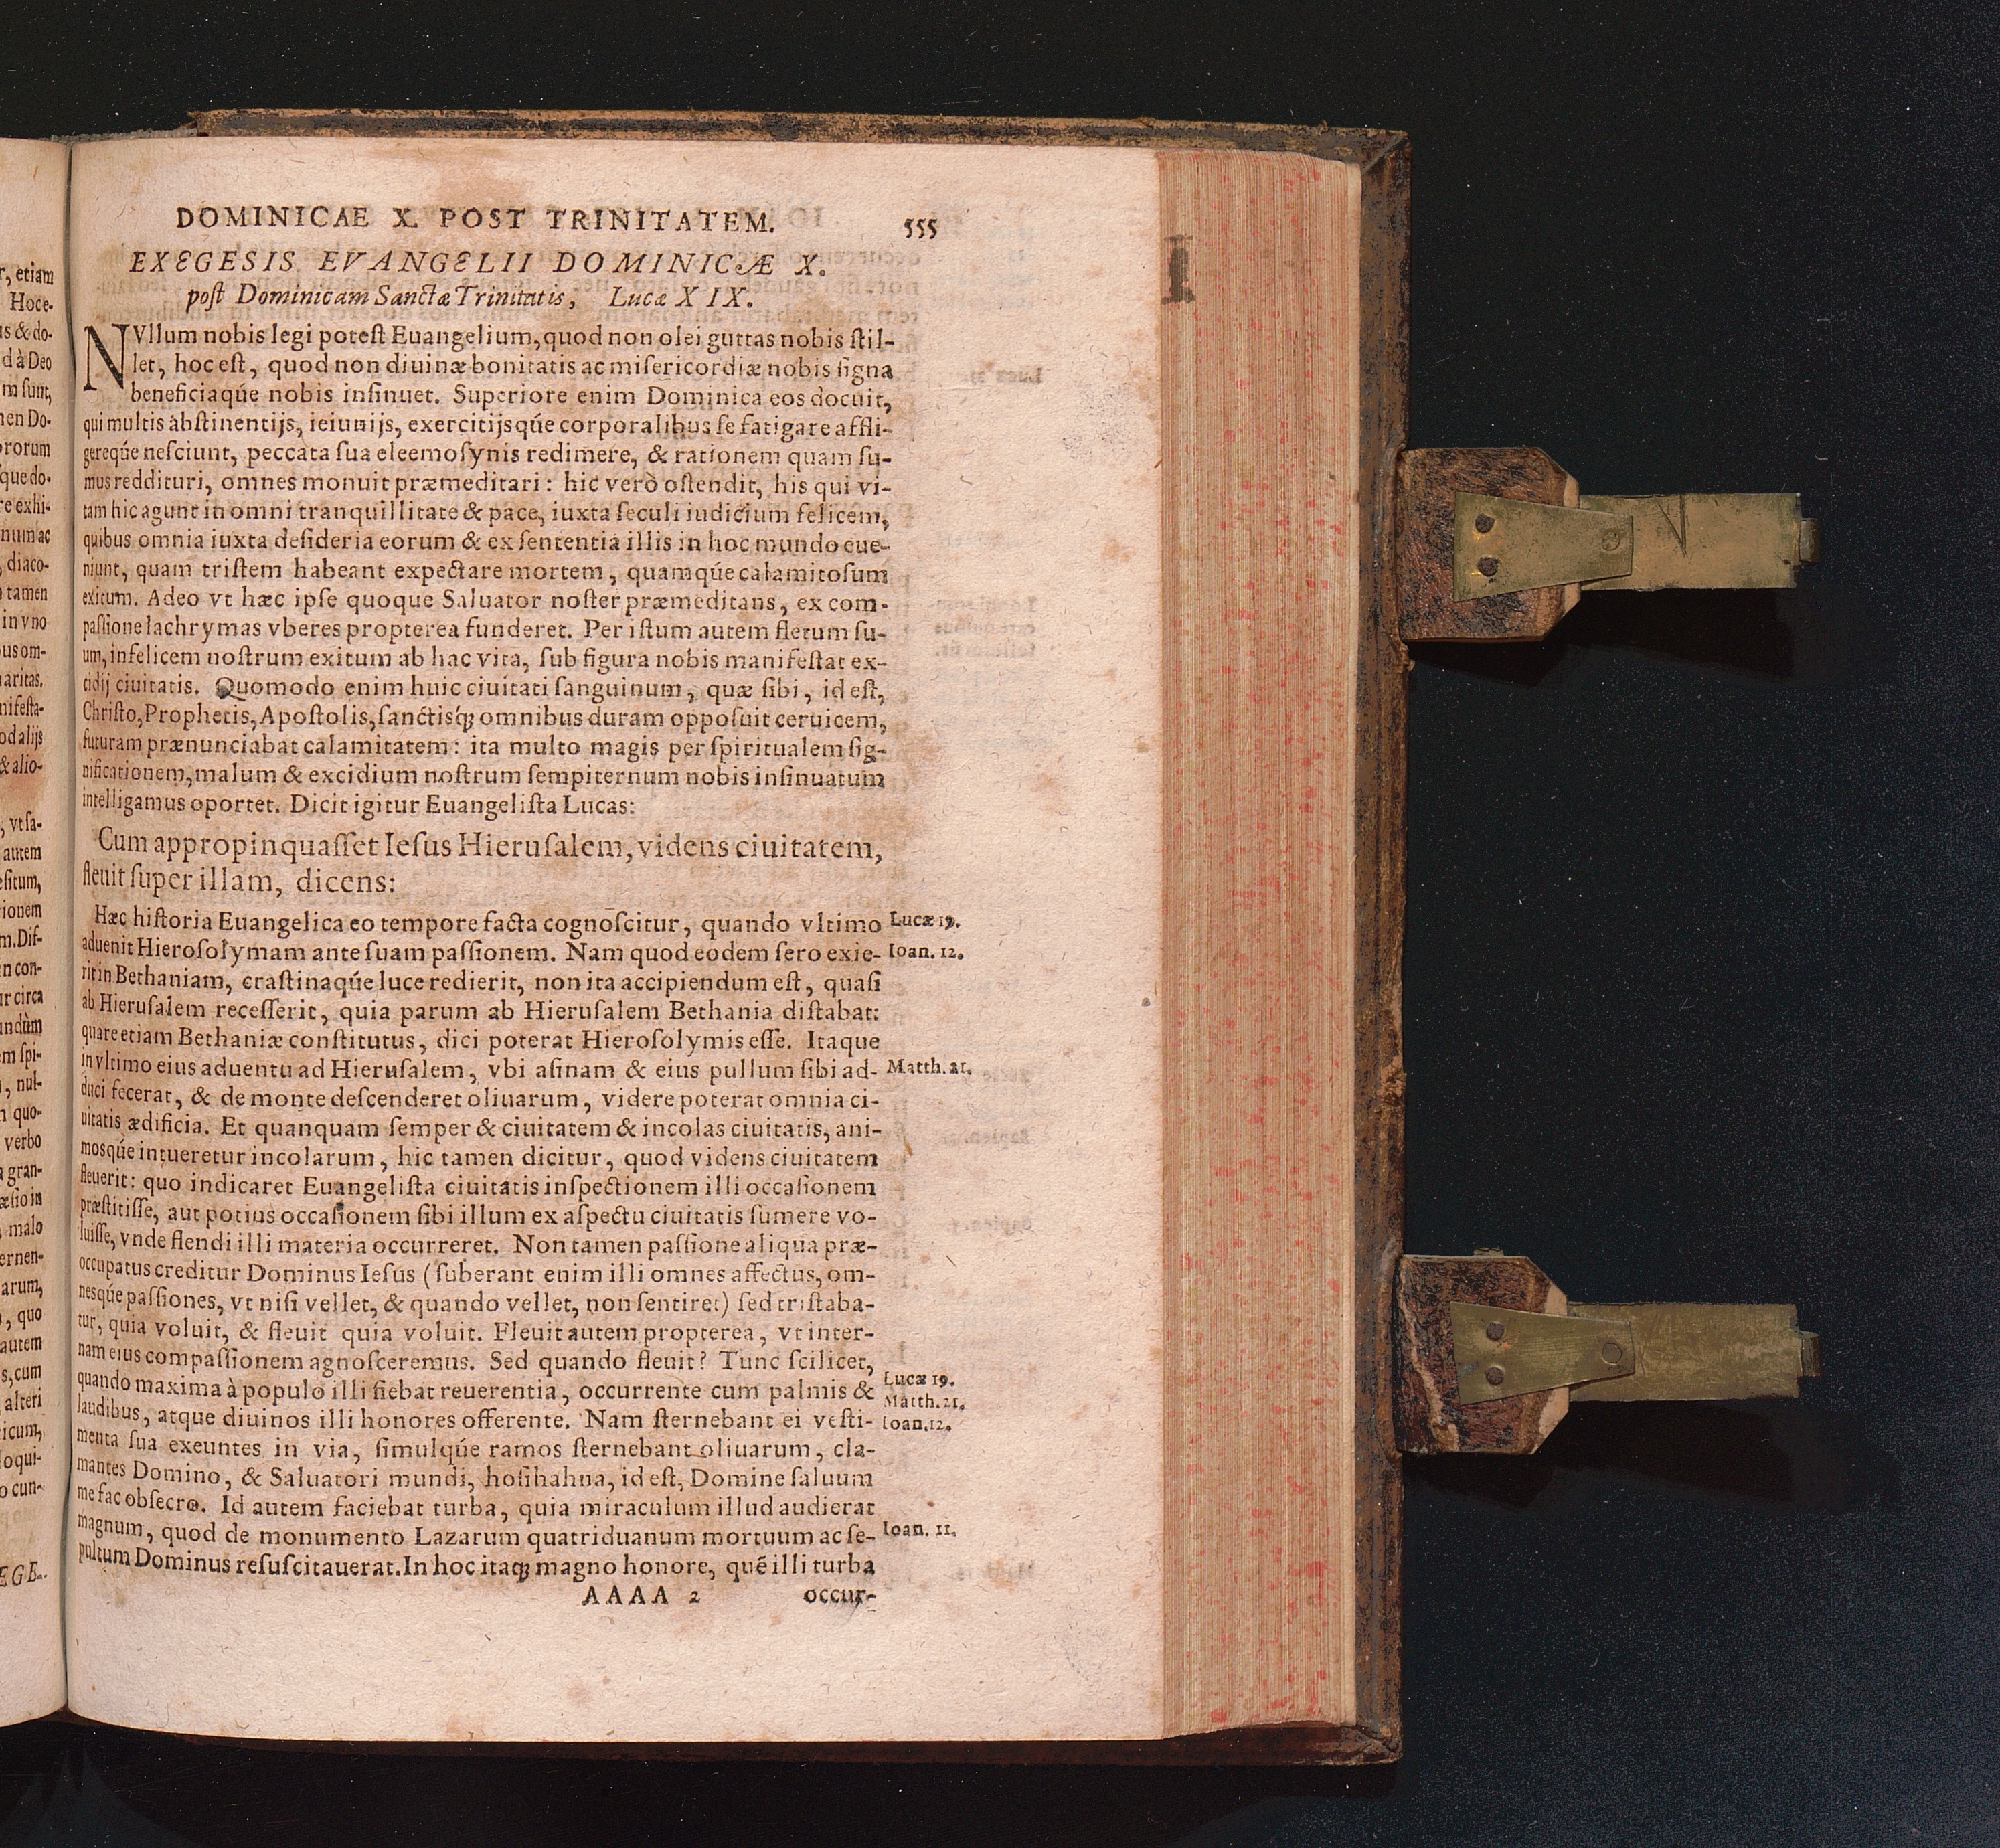 DOMINICAE X. POST TRINITATEM. 555
EXEGESIS EVANGELII DOMINICÆ X.
post Dominicam Sanctæ Trinitatis, Lucæ XIX.
NVllum nobis legi potest Euangelium, quod non olei guttas nobis stil-
let, hoc est, quod non diuinæ bonitatis ac misericordiæ nobis signa
beneficiaqúe nobis insinuet. Superiore enim Dominica eos docuit,
qui multis abstinentijs, ieiunijs, exercitijsqúe corporalibus se fatigare affli-
gereqúe nesciunt, peccata sua eleemosynis redimere, & rationem quam su-
mus reddituri, omnes monuit præmeditari: hic verò ostendit, his qui vi-
tam hic agunt in omni tranquillitate & pace, iuxta seculi iudicium felicem,
quibus omnia iuxta desideria eorum & ex sententia illis in hoc mundo eue-
niunt, quam tristem habeant expectare mortem, quamqúe calamitosum
exitum. Adeo vt hæc ipse quoque Saluator noster præmeditans, ex com-
passione lachrymas vberes propterea funderet. Per istum autem fletum su-
um, infelicem nostrum exitum ab hac vita, sub figura nobis manifestat ex-
cidij ciuitatis. Quomodo enim huic ciuitati sanguinum, quæ sibi, id est,
Christo, Prophetis, Apostolis, sanctisq́ꝫ omnibus duram opposuit ceruicem,
futuram prænunciabat calamitatem: ita multo magis per spiritualem sig-
nificationem, malum & excidium nostrum sempiternum nobis insinuatum
intelligamus oportet. Dicit igitur Euangelista Lucas:
Cum appropinquasset Iesus Hierusalem, videns ciuitatem,
fleuit super illam, dicens:
Hæc historia Euangelica eo tempore facta cognoscitur, quando vltimo Lucæ 19.
aduenit Hierosolymam ante suam passionem. Nam quod eodem sero exie- Ioan. 12.
rit in Bethaniam, crastinaqúe luce redierit, non ita accipiendum est, quasi
ab Hierusalem recesserit, quia parum ab Hierusalem Bethania distabat:
quare etiam Bethaniæ constitutus, dici poterat Hierosolymis esse. Itaque
in vltimo eius aduentu ad Hierusalem, vbi asinam & eius pullum sibi ad- Matth. 21.
duci fecerat, & de monte descenderet oliuarum, videre poterat omnia ci-
uitatis ædificia. Et quanquam semper & ciuitatem & incolas ciuitatis, ani-
mosqúe intueretur incolarum, hic tamen dicitur, quod videns ciuitatem
fleuerit: quo indicaret Euangelista ciuitatis inspectionem illi occasionem
præstitisse, aut potius occasionem sibi illum ex aspectu ciuitatis sumere vo-
luisse, vnde flendi illi materia occurreret. Non tamen passione aliqua præ-
occupatus creditur Dominus Iesus (suberant enim illi omnes affectus, om-
nesqúe passiones, vt nisi vellet, & quando vellet, non sentiret) sed tristaba-
tur, quia voluit, & fleuit quia voluit. Fleuit autem propterea, vt inter-
nam eius compassionem agnosceremus. Sed quando fleuit? Tunc scilicet,
quando maxima à populo illi fiebat reuerentia, occurrente cum palmis & Lucæ 19.
Matth. 21.
laudibus, atque diuinos illi honores offerente. Nam sternebant ei vesti- Ioan. 12.
menta sua exeuntes in via, simulqúe ramos sternebant oliuarum, cla-
mantes Domino, & Saluatori mundi, hosihahna, id est, Domine saluum
me fac obsecro. Id autem faciebat turba, quia miraculum illud audierat
magnum, quod de monumento Lazarum quatriduanum mortuum ac se- Ioan. 11.
pultum Dominus resuscitauerat. In hoc itaqꝫ magno honore, quē illi turba
AAAA 2 occur-